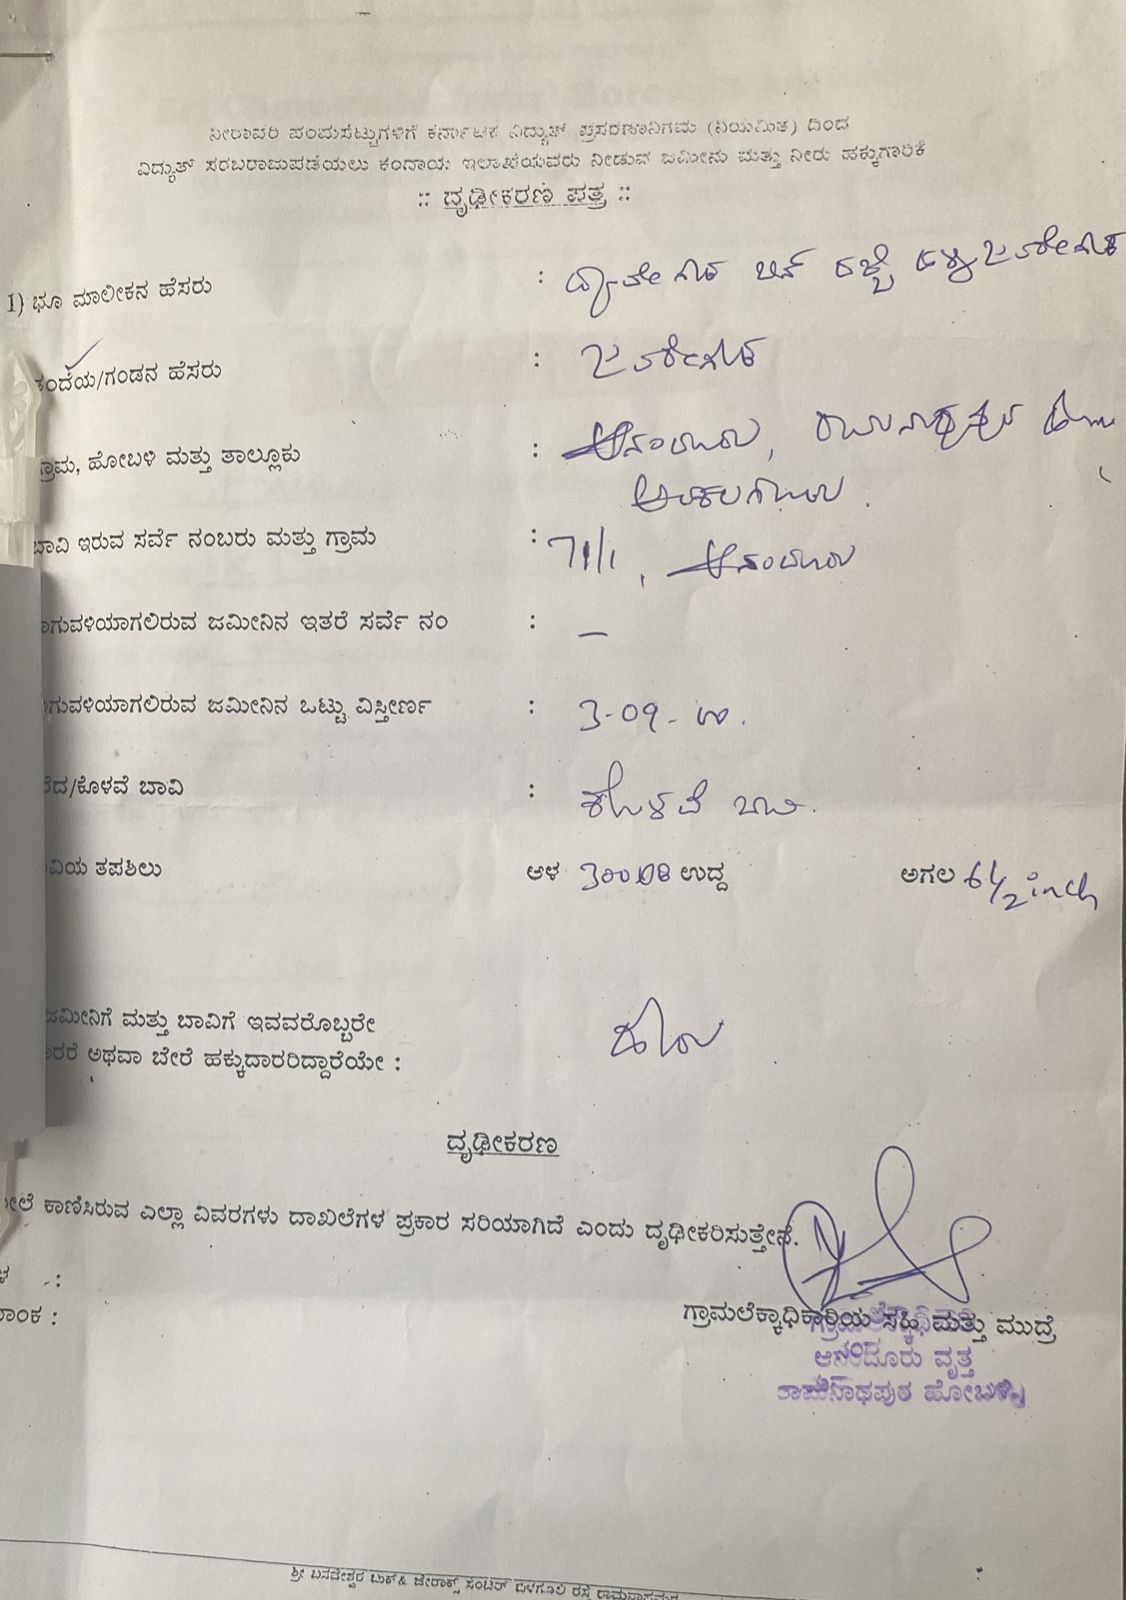 ನೀರಾವರಿ ಪಂಪುಸೆಟ್ಟುಗಳಿಗೆ ಕರ್ನಾಟಕ ವಿದ್ಯುತ್ ಪ್ರಸರಣಾನಿಗಮ (ನಿಯಮಿತ) ದಿಂದ
ವಿದ್ಯುತ್ ಸರಬರಾಮಪಡೆಯಲು ಕಂದಾಯ ಇಲಾಖೆಯವರು ನೀಡುವ ಜಮೀನು ಮತ್ತು ನೀರು ಹಕ್ಕುಗಾರಿಕೆ
:: ದೃಢೀಕರಣ ಪತ್ರ ::
1) ಭೂ ಮಾಲೀಕನ ಹೆಸರು :
ತಂದೆಯ/ಗಂಡನ ಹೆಸರು :
ಗ್ರಾಮ, ಹೋಬಳಿ ಮತ್ತು ತಾಲ್ಲೂಕು : ಆನಂದೂರು,
ಬಾವಿ ಇರುವ ಸರ್ವೆ ನಂಬರು ಮತ್ತು ಗ್ರಾಮ : 71/1, ಆನಂದೂರು
ಾಗುವಳಿಯಾಗಲಿರುವ ಜಮೀನಿನ ಇತರೆ ಸರ್ವೆ ನಂ : —
ಾಗುವಳಿಯಾಗಲಿರುವ ಜಮೀನಿನ ಒಟ್ಟು ವಿಸ್ತೀರ್ಣ : 3-09-
ತೆರೆದ/ಕೊಳವೆ ಬಾವಿ : ಕೊಳವೆ ಬಾವಿ.
ಬಾವಿಯ ತಪಶಿಲು ಆಳ 300 ಉದ್ದ ಅಗಲ 6½ inch
ಜಮೀನಿಗೆ ಮತ್ತು ಬಾವಿಗೆ ಇವವರೊಬ್ಬರೇ
ಾರರೆ ಅಥವಾ ಬೇರೆ ಹಕ್ಕುದಾರರಿದ್ದಾರೆಯೇ : ಹೌದು
ದೃಢೀಕರಣ
ಮೇಲೆ ಕಾಣಿಸಿರುವ ಎಲ್ಲಾ ವಿವರಗಳು ದಾಖಲೆಗಳ ಪ್ರಕಾರ ಸರಿಯಾಗಿದೆ ಎಂದು ದೃಢೀಕರಿಸುತ್ತೇನೆ.
ಳ :
ಾಂಕ :
ಗ್ರಾಮಲೆಕ್ಕಾಧಿಕಾರಿಯ ಸಹಿ ಮತ್ತು ಮುದ್ರೆ
ಆನಂದೂರು ವೃತ್ತ
ರಾಮನಾಥಪುರ ಹೋಬಳಿ
ಶ್ರೀ ಬಸವೇಶ್ವರ ಬುಕ್ & ಜೇರಾಕ್ಸ್ ಸೆಂಟರ್